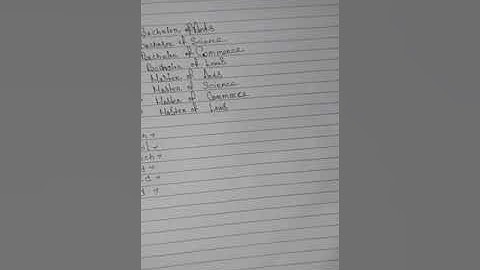 Bachelor of Arts
Bachelor of Science
Bachelor of Commerce
Bachelor of Laws
Master of Arts
Master of Science
Master of Commerce
Master of Laws